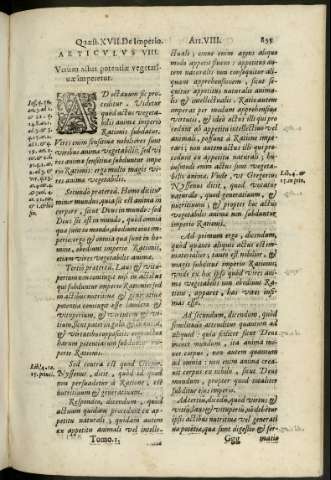 Quæst. XVII. De Imperio.
Art. VIII.
835
ARTICVLVS VIII.
Vtrum actus potentiæ vegetati-
uæ imperetur.
AD octauum sic pro-
ceditur. Videtur
quòd actus vegeta-
bilis animæ imperio
Rationis subdatur.
Vires enim sensitiuæ nobiliores sunt
viribus animæ vegetabilis: sed vi-
res animæ sensitiuæ subduntur impe-
rio Rationis: ergo multo magis vi-
res animæ vegetabilis.
Secundò præterea. Homo dicitur
minor mundus, quia sic est anima in
corpore, sicut Deus in mundo: sed
Deus sic est in mundo, quòd omnia
quæ sunt in mundo, obediunt eius im-
perio: ergo & omnia quæ sunt in ho-
mine, obediunt imperio Rationis,
etiam vires vegetabilis animæ.
Tertiò præterea. Laus & vitu-
perium non contingit nisi in actibus
qui subduntur imperio Rationis: sed
in actibus nutritiuæ & generatiuæ
potentiæ contingit esse laudem &
vituperium, & virtutem & vi-
tium, sicut patet in gula & luxuria,
harum potentiarum subduntur im-
perio Rationis.
Sed contra est quod
Nyssenus dicit, quòd id quod
non persuadetur à Ratione, est
nutritiuum & generatiuum.
Respondeo, dicendum, quòd
actuum quidam procedunt ex ap-
petitu naturali, quidam autem
ex appetitu animali vel intelle-
Tomo. 1,
ctuali: omne enim agens aliquo
modo appetit finem: appetitus au-
tem naturalis non consequitur ali-
quam apprehensionem, sicut se-
quitur appetitus animalis
& intellectualis. Ratio autem
imperat per modum apprehensiuæ
virtutis, & ideo actus illi qui pro-
cedunt ab appetitu intellectiuo vel
animali, possunt à Ratione impe-
rari, non autem actus illi qui pro-
cedunt ex appetitu naturali: hu-
iusmodi autem sunt actus vegeta-
bilis animæ. Vnde, vt Gregorius
Nyssenus dicit, quòd vocatur
naturale, quod generatiuum, &
nutritiuum: & propter hoc actus
vegetabilis animæ non subduntur
imperio Rationis.
Ad primum ergo, dicendum,
quòd quanto aliquis actus est im-
materialior, tanto est nobilior, &
magis subditur imperio Rationis:
vnde ex hoc ipso quòd vires ani-
mæ vegetabilis non obediunt Ra-
tioni, apparet, has vires infi-
mas esse.
Ad secundum, dicendum, quòd
similitudo attenditur quantum ad
aliquid: quia scilicet sicut Deus
mouet mundum, ita anima mo-
uet corpus, non autem quantum
ad omnia: non enim anima crea-
uit corpus ex nihilo, sicut Deus
mundum, propter quod totaliter
subditur eius imperio.
Ad tertiũ, dicendũ, quòd virtus &
vitiũ, laus & vituperiũ nõ debetur
ipsis actibus nutritiuæ vel generati-
uæ potẽtiæ, qui sunt digestio & for-
Ggg
matio